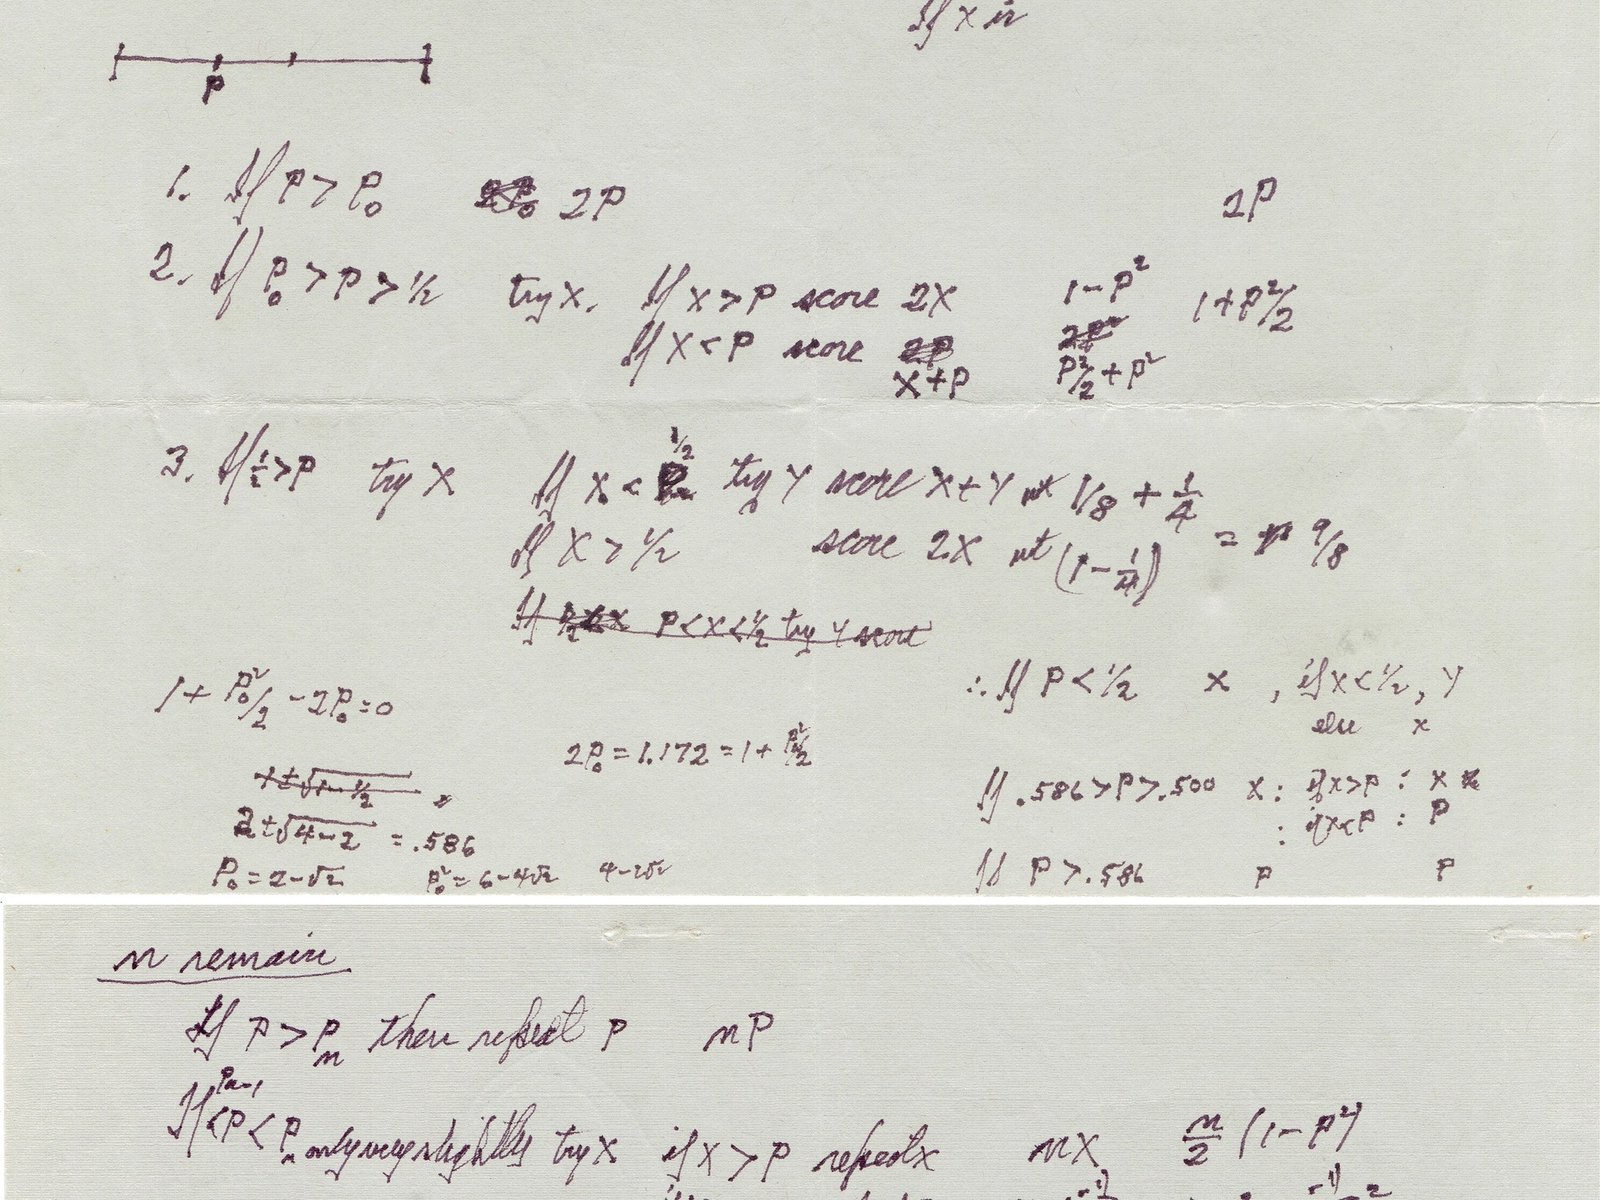 If x is
P
1. If P > P₀ 2P 2P
2. If P₀ > P > 1/2 try x. If x > P score 2x 1-P² 1+P²/2
If x < P score 2P 2P²
x+P P²/2 + P²
3. If 1/2 > P try x If x < 1/2 try y score x+y wt 1/8 + 1/4
If x > 1/2 score 2x wt (1 - 1/4) = 9/8
If P < x < 1/2 try y score
1 + P₀²/2 - 2P₀ = 0
∴ If P < 1/2 x , if x < 1/2, y
else x
2P₀ = 1.172 = 1 + P₀²/2
1±√1-1/2
If .586 > P > .500 x : if x>P : x
2±√4-2 = .586
: if x<P : P
P₀ = 2-√2 P₀² = 6-4√2 4-2√2
If P > .586 P P
n remain
If P > Pₙ then repeat P nP
If Pₙ₋₁ < P < Pₙ only very slightly try x if x > P repeat x nx n/2 (1-P²)